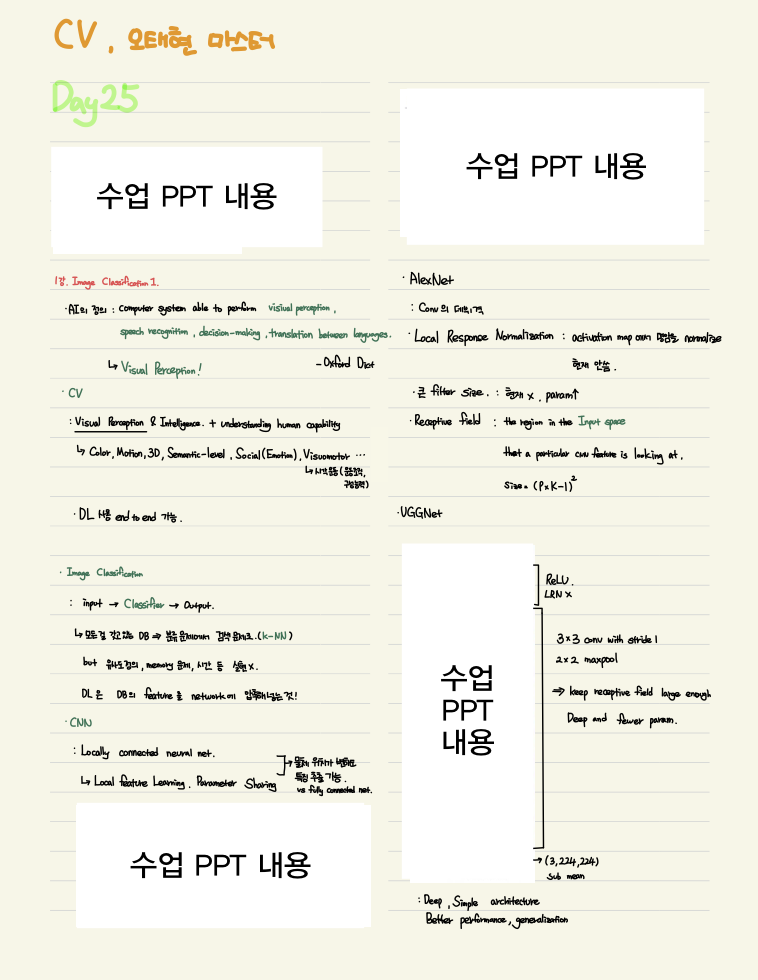 CV, 오태현 마스터
Day25
수업 PPT 내용
1강. Image Classification 1.
·AI의 정의 : Computer system able to perform visiual perception,
speech recognition, decision-making, translation between languages.
↳ Visual Perception! - Oxford Dict
· CV
: Visual Perception & Intelligence. + understanding human capability
↳ Color, Motion, 3D, Semantic-level, Social(Emotion), Visuomotor ···
↳ 시각운동(운동조작,
구성능력)
· DL 사용 end to end 가능.
· Image Classification
: input → Classifier → Output.
↳ 모든걸 갖고있는 DB ⇒ 분류 문제에서 검색 문제로. (k-NN)
but 유사도정의, memory 문제, 시간 등 실현 x.
DL은 DB의 feature를 network에 압축해넣는것!
· CNN
: Locally connected neural net.
↳ Local feature Learning. Parameter Sharing
→ 물체 위치가 변해도
특징 추출 가능.
vs fully connected net.
수업 PPT 내용
수업 PPT 내용
· AlexNet
: Conv의 대히격
· Local Response Normalization : activation map에서 명암을 normalize
현재 안씀.
· 큰 filter size. : 현재 x, param↑
· Receptive field : the region in the Input space
that a particular CNN feature is looking at.
Size = (P+K-1)²
·UGGNet
수업
PPT
내용
ReLU.
LRN x
3×3 conv with stride 1
2×2 maxpool
⇒ keep receptive field large enough
Deep and fewer param.
→ (3,224,224)
Sub mean
: Deep, Simple architecture
Better performance, generalization